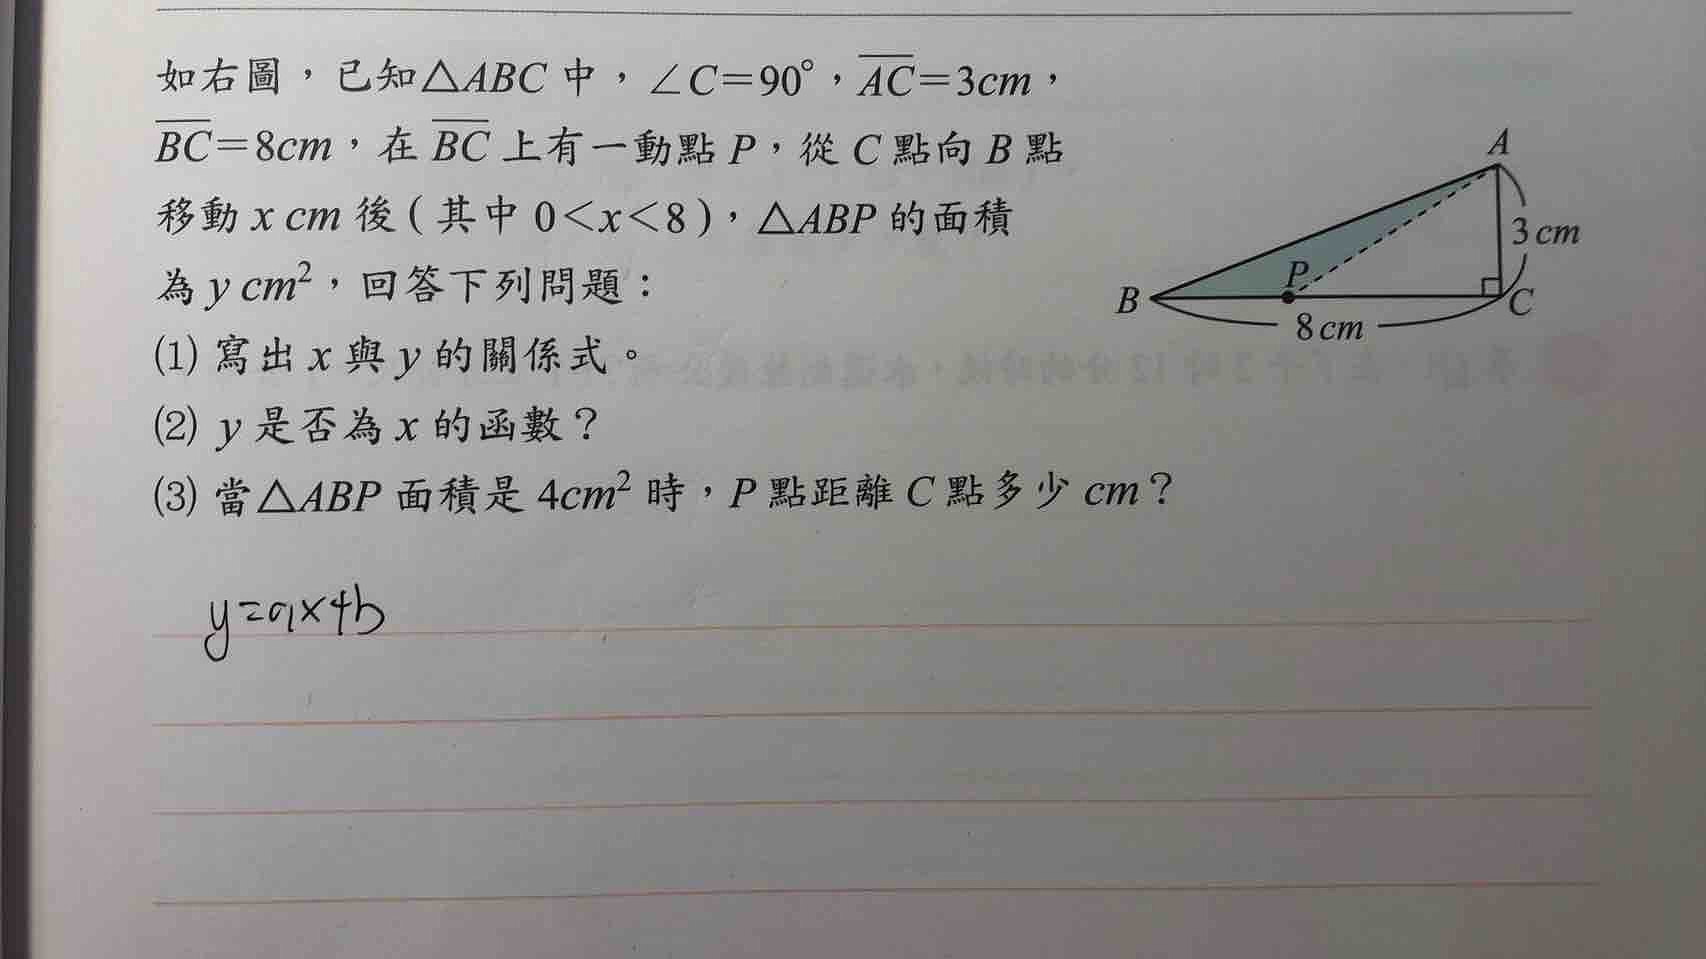 如右圖，已知△ABC 中，∠C＝90°，AC＝3cm，
BC＝8cm，在 BC 上有一動點 P，從 C 點向 B 點
移動 x cm 後 ( 其中 0＜x＜8 )，△ABP 的面積
為 y cm²，回答下列問題：
(1) 寫出 x 與 y 的關係式。
(2) y 是否為 x 的函數？
(3) 當△ABP 面積是 4cm² 時，P 點距離 C 點多少 cm？
A
3 cm
P
B
C
8 cm
y=ax+b